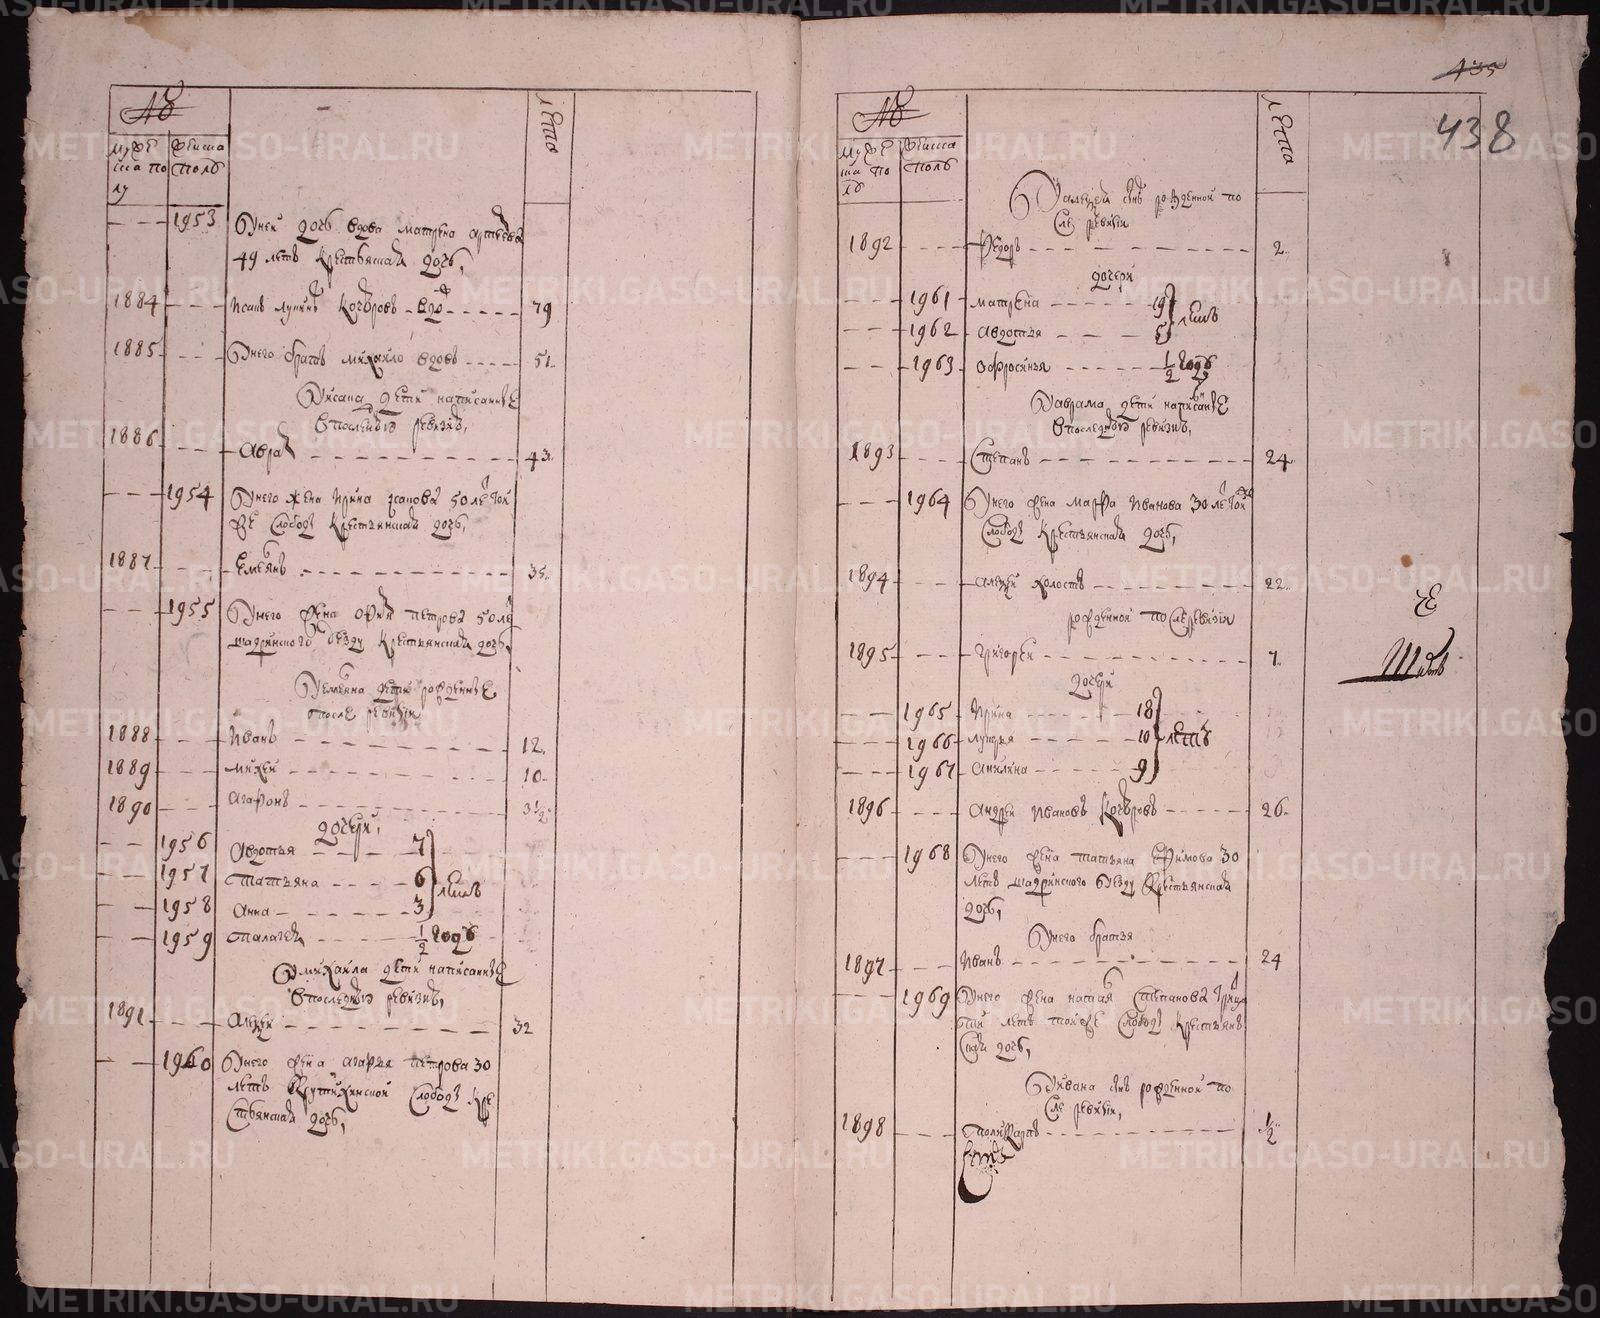 №
лета
муже
ска по
лу
женска
полъ
1953
Унеи дочь вдова матрена артемева
49 летъ крестьянская дочь,
1884 Исакъ лупинъ Кочюровъ вдовъ 79
1885 Унего братъ михаило вдовъ 51
Уисака дети написанные
впоследнюю ревизию,
1886 Аврам 43
1954 Унего жена ирина 50 летъ той
же слободы крестьянская дочь,
1887 Емелянъ 35
1955 Унего жена петрова 50 летъ
шадринского уезду крестьянская дочь,
Уемеляна дети рожденные
после ревизии
1888 Иванъ 12
1889 михеи 10
1890 агафонъ 3 1/2
дочери,
1956 Авдотья 7
1957 татьяна 6 летъ
1958 анна 3
1959 палагея 1/2 года
Умихаила дети написанные
впоследнюю ревизию,
1891 алексеи 32
1960 Унего жена агафья петрова 30
летъ крутихинской слободы кре
стьянская дочь,
435
438
№
лета
муже
ска по
лъ
женска
полъ
Уалексея сынъ рожденной по
сле ревизии
1892 Федоръ 2
дочери
1961 матрена 19
1962 авдотья 5 летъ
1963 офросинья 1/2 года
Уаврама дети написанные
впоследнюю ревизию,
1893 Степанъ 24
1964 Унего жена марфа иванова 30 летъ тойже
слободы крестьянская дочь,
1894 алексеи холостъ 22
рожденной послеревизии
1895 григореи 7
дочери
1965 Ирина 18
1966 лукерья 10 летъ
1967 акилина 9
1896 андреи ивановъ Кочюровъ 26
1968 Унего жена татьяна ефимова 30
летъ шадринского уезду крестьянская
дочь,
Унего братья
1897 Иванъ 24
1969 Унего жена наталья степанова тритца
ти летъ тойже слободы крестьян
ская дочь,
Уивана сынъ рожденной по
сле ревизии,
1898 поликарпъ 1/2
METRIKI.GASO-URAL.RU